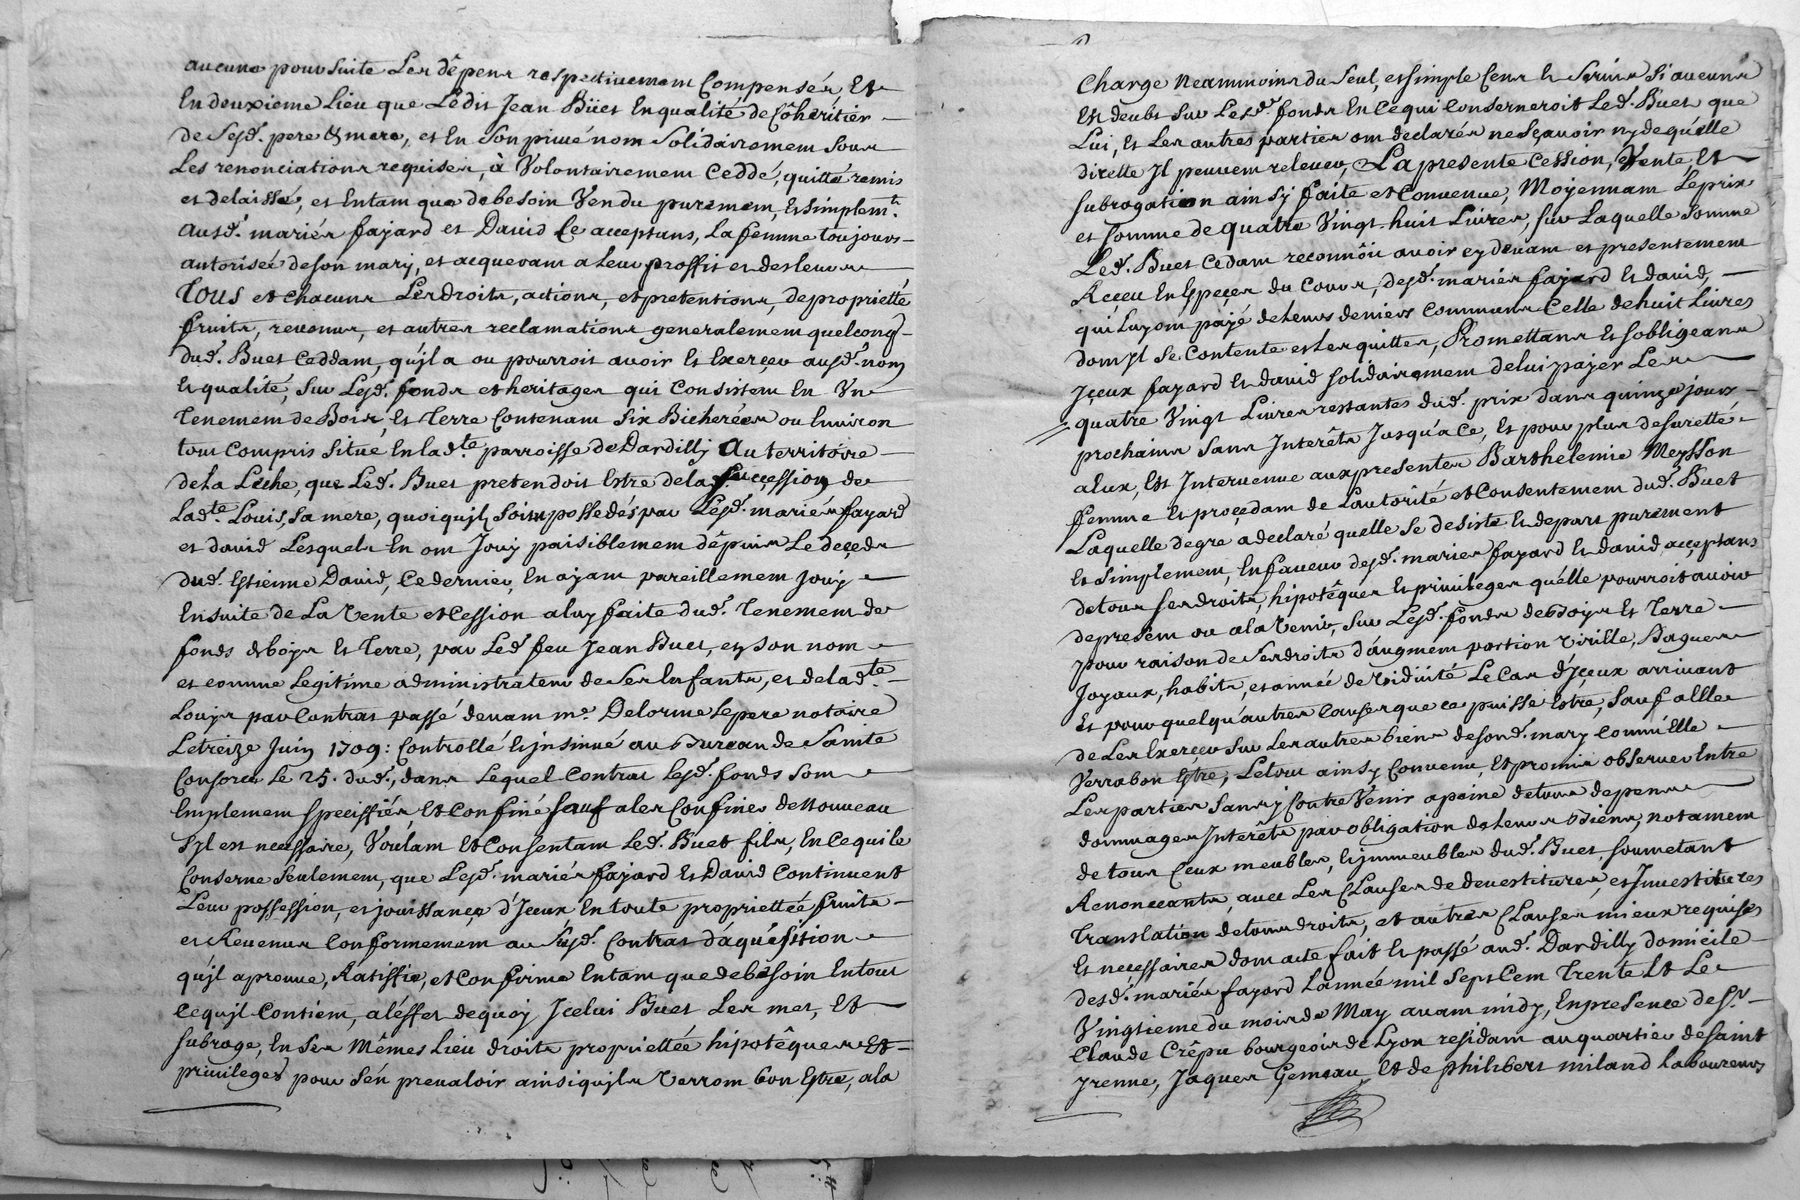 aucune poursuite Les dêpens respectivement Compensés Et
En deuxieme Lieu que Ledit Jean Büet En qualité de Côhéritier
de Sesd. pere & mere, et En Son privé nom Solidairement Sous
Les renonciations requises, à Volontairement Ceddé, quitté remis
et delaissé, et Entant que de besoin Vendu purement, Et simplemt.
ausd. mariés fayard et David Ce acceptans, La femme toujours
autorisée de son mary, et acquerant a Leur proffit et des leurs
Tous et chacuns Les droits, actions, et pretentions, de proprietté
fruits, revenus, et autres reclamations generalement quelconq.
dud. Buet Ceddant, qu'jl a ou pourroit avoir Et Exerçer ausd. nom
Et qualité, Sur Lesd. fonds et heritages qui Consistent En Un
Tenement de Bois, Et Terre Contenant Six Bicherées ou Environ
tout Compris Situé En lad.te parroisse de Dardilly Au territoire
de La Léche, que Led. Buet pretendoit Estre de la Sucçession de
Lad.te Louis, Sa mere, quoiqujls Soint possedés par Lesd. mariés fayard
et david Lesquels En ont Jouy paisiblement dêpuis Le deçeds
dud. Estienne David, Ce dernier, En ayant pareillement Jouy
Ensuite de La Vente et Cession a luy faite dud. Tenement de
fonds de boys Et Terre, par Led. feu Jean Buet, en Son nom
et comme Legitime administrateur de Ses Enfants, et de lad.te
Louys par Contrat passé devant me. Delorme Le pere notaire
Le treize Juin 1709: Controllé Et jnsinué au Bureau de Sainte
Consorce Le 25. dud., dans Lequel Contrat Lesd. fonds Sont
Emplement speciffiés, Et Confiné sauf a les Confiner de Nouveau
S'jl est necessaire, Voulant Et Consentant Led. Buet fils, En Ce qui Le
Conserne Seulement, que Lesd. mariés fayard Et David Continuent
Leur possession, et jouissançe d'Jceux En toute propriettée fruits
et Revenus Conformement au Susd. Contrat d'aquésition
qu'jl aprouve, Ratiffie, et Confirme Entant que de besoin En tout
Ce qujl Contient, a l'éffet de quoy Jcelui Buet Les met, Et
subroge, En Ses Mêmes Lieu droits propriettée hipotêques Et
privileges pour S'en prevaloir ainsi qu'jls Verront bon Estre, a la
Charge neammoins du Seul, et simple Cens Et Servis Si aucuns
Est deubt Sur Lesd. fonds En Ce qui Conserneroit Led. Buet que
Lui, Et Les autres parties ont declarés ne Sçavoir ny de qu'elle
directe Jl peuvent relever, La presente Cession, Vente, Et
subrogation ainsy faite et Convenue, Moyennant Le prix
et somme de quatre Vingt-huit Livres, sur Laquelle Somme
Led. Buet Cedant reconnôit avoir cy devant et presentement
Reçeu En Espeçes du Cours, desd. mariés fayard Et david,
qui Luy ont payé de Leurs deniers Communs Celle de huit Livres
dont jl se Contente et Les quitte, Promettans Et S'obligeans
Jçeux fayard Et david solidairement de lui payer Les
quatre Vingt Livres restantes dud. prix dans quinze jours
prochains Sans Interêts Jusqu'a Ce, Et pour plus de suretté
a Eux, Est Intervenue aux presentes Barthelemie Meysson
femme Et proçedant de L'autôrité et Consentement dud. Buet
Laquelle de gré a declaré quelle Se desiste Et depart purement
Et Simplement, En faveur desd. mariés fayard Et david acceptans
de tous Ses droits, hipotêques Et privileges qu'élle pourroit avoir
de present ou a la Venir, Sur Lesd. fonds de boys Et Terre
pour raison de Ses droits d'augment portion Virille, Bagues
Joyaux, habits, et année de Viduité Le Cas d'Jceux arrivant
Et pour quelqu'autres Causes que ce puisse Estre, Sauf a Elle
de Les Exerçer Sur Les autres biens de Sond. mary Comm'Elle
Verra bon Estre, Le tout ainsy Convenu, Et promis observer Entre
Les parties Sans y Contre Venir a peine de tous depens
dommages Interêts par obligation de Leurs Biens, notament
de tous Ceux meubles, Et jmmeubles dud. Buet soumetant
Renonceants, avec Les Clauses de devestitures, et Jnvestitures
Translation de tous droits, et autres Clauses mieux requises
Et necessaires dont acte fait Et passé aud. Dardilly domicile
desd. mariés fayard L'année mil Sept Cent Trente Et Le
Vingtieme du mois de May avant midy, En presence de Sr.
Claude Crêpu bourgeois de Lyon residant au quartier de Saint
Jrenne, Jaques Gemeau, Et de philibert miland Laboureurs